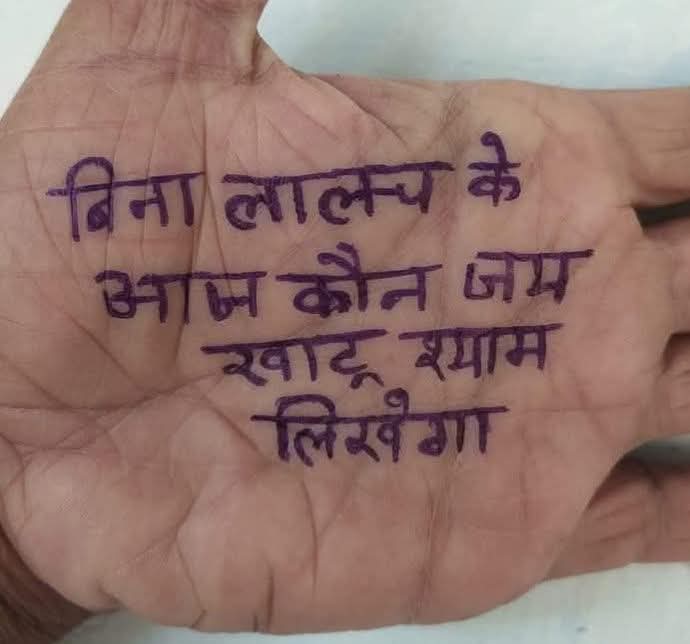 बिना लालच के
आज कौन जय
खाटू श्याम
लिखेगा